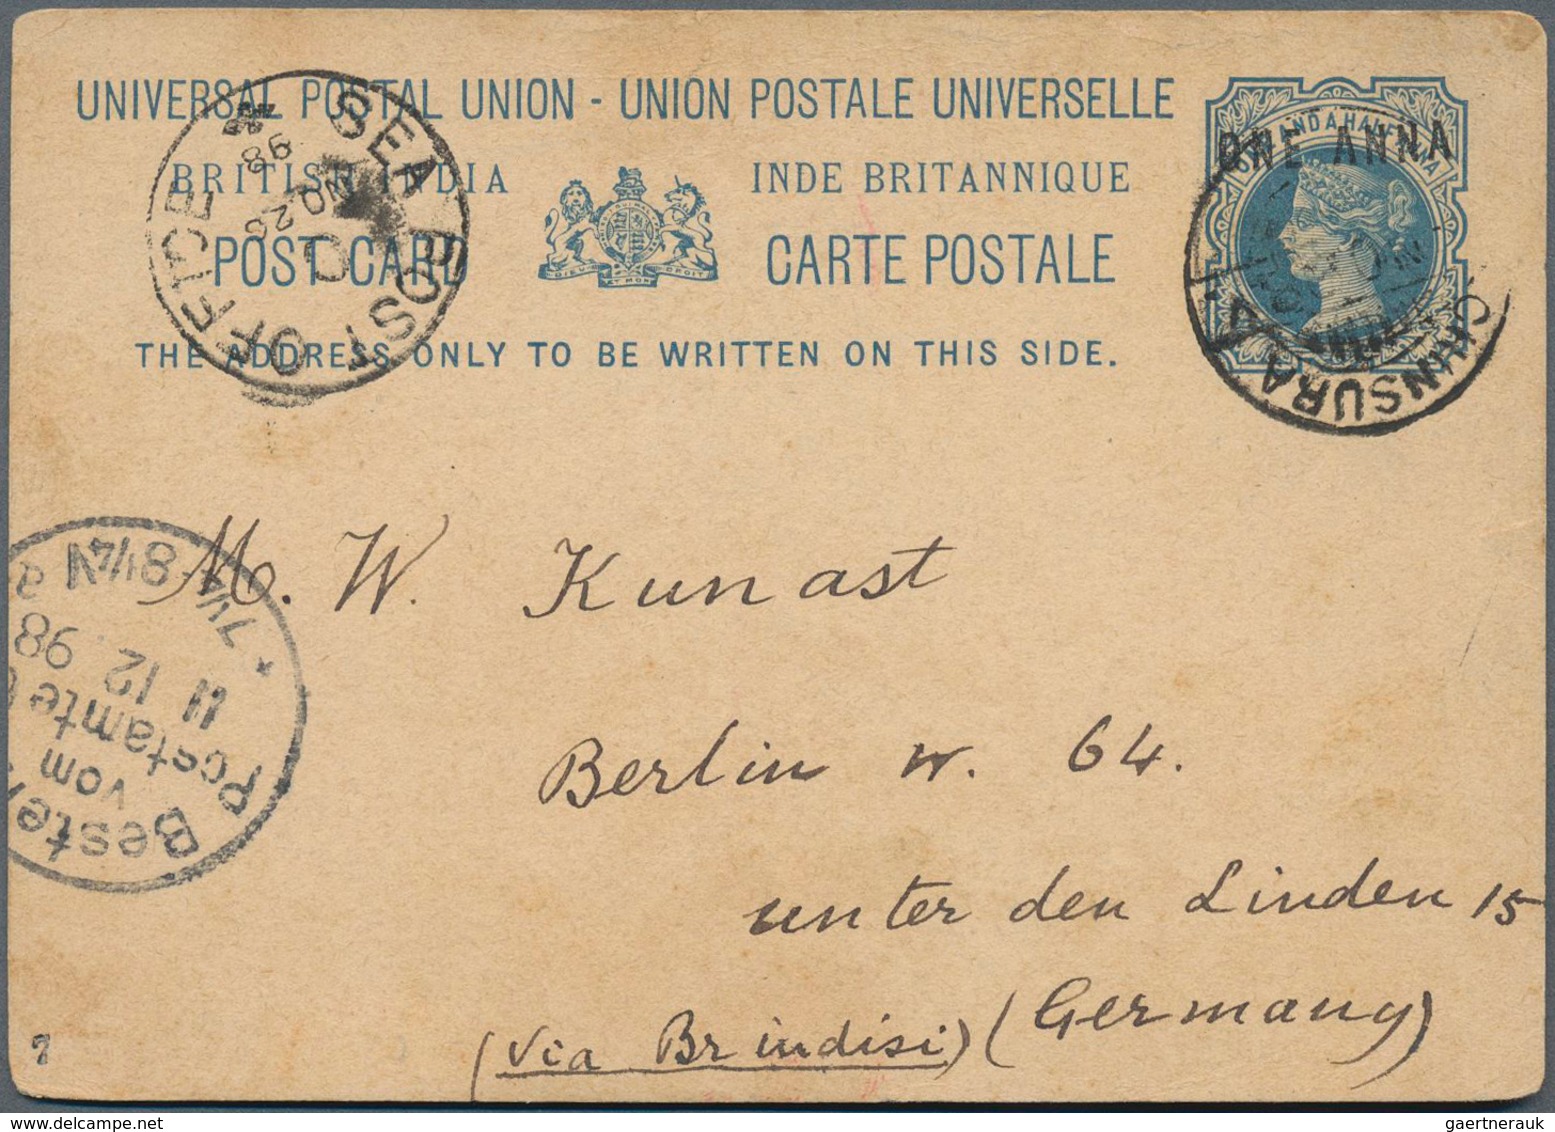 UNIVERSAL POSTAL UNION - UNION POSTALE UNIVERSELLE
BRITISH INDIA INDE BRITANNIQUE
POST CARD CARTE POSTALE
THE ADDRESS ONLY TO BE WRITTEN ON THIS SIDE.
DIEU ET MON DROIT
ONE AND A HALF ANNA
ONE ANNA
SEA POST OFFICE
C
NO 26
98
CHINSURA
M. W. Kunast
Berlin W. 64.
unter den Linden 15
(Germany)
(Via Brindisi)
Beste
vom
Postamte
11 12 98
7½-8¼N
gaertnerauk @ delcampe.net